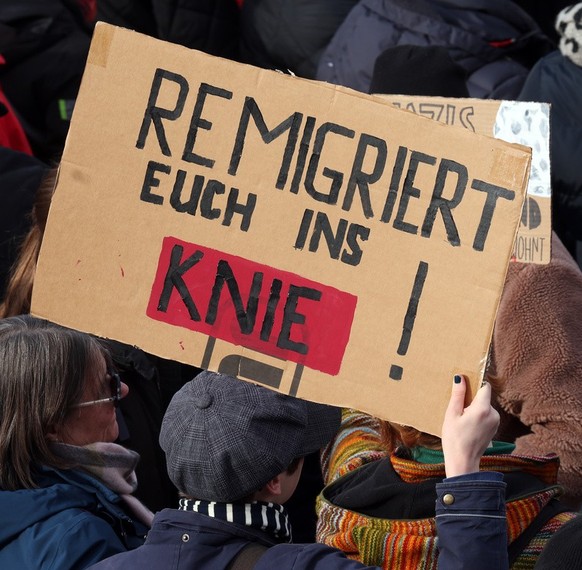 REMIGRIERT
EUCH INS
KNIE !
NAZIS
OHNT